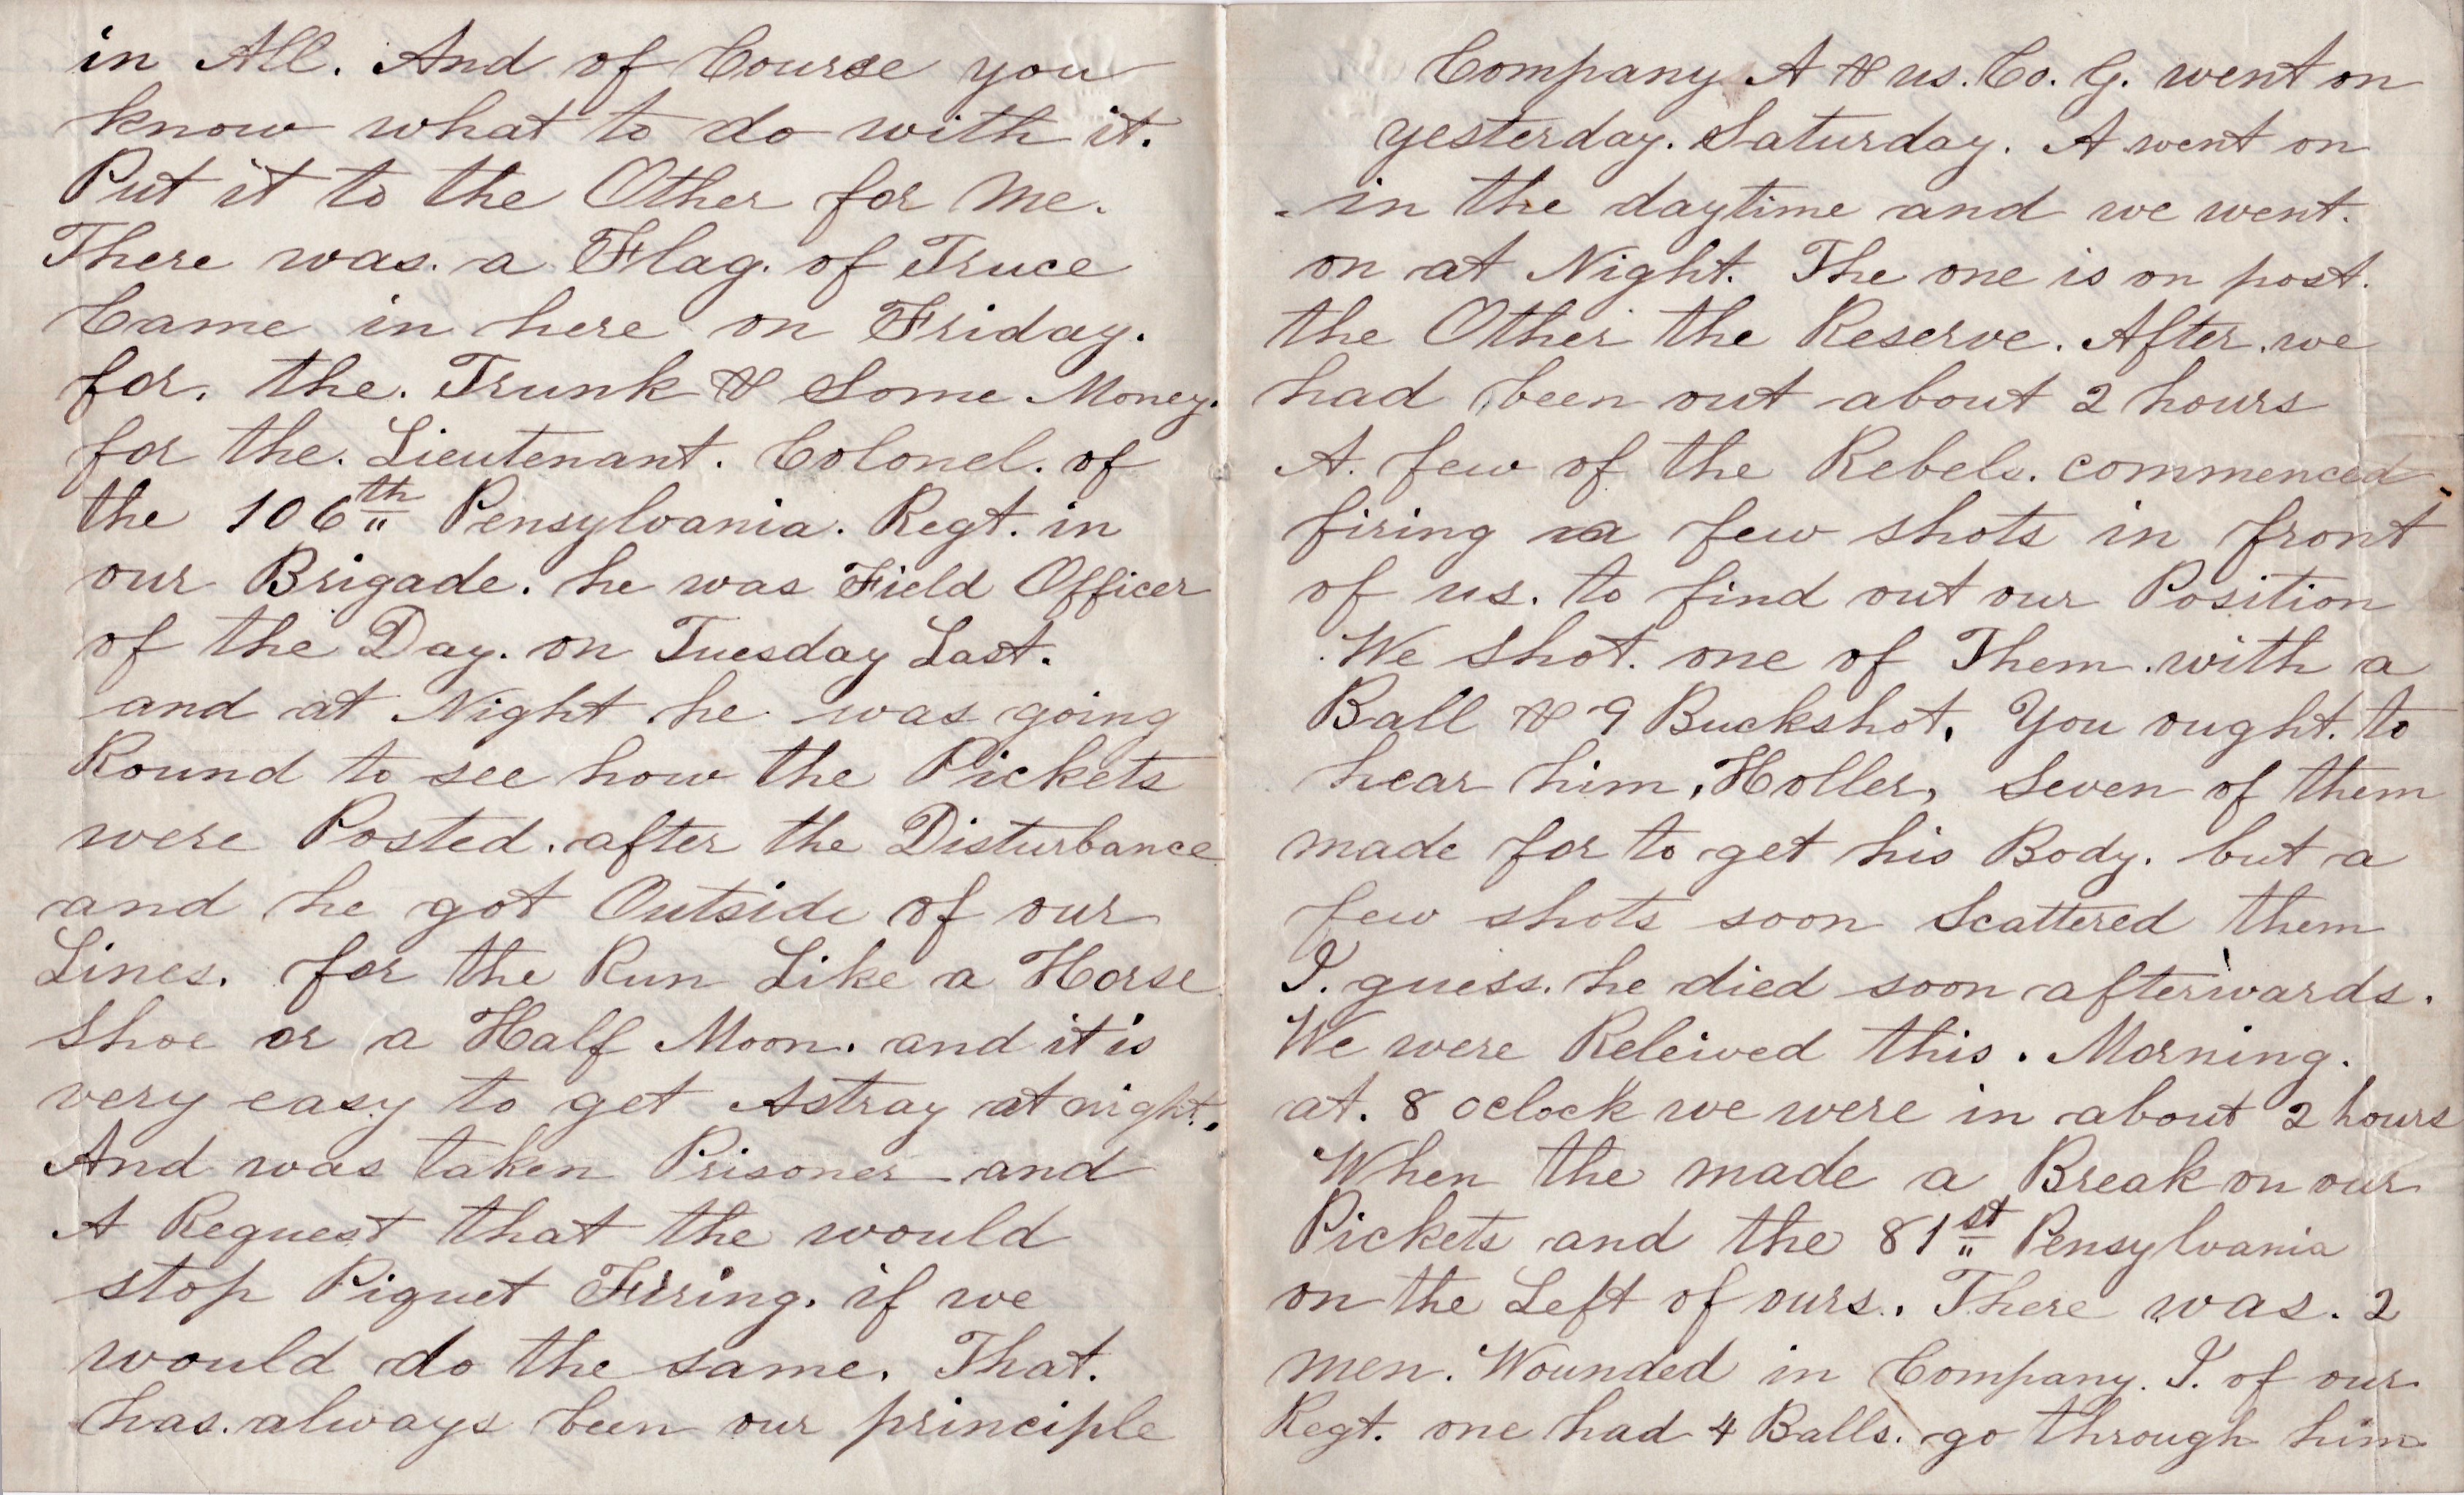 in All. And of Course you
know what to do with it.
Put it to the Other for Me.
There was. a Flag. of Truce
Came in here on Friday.
for. the. Trunk & Some Money.
for the. Lieutenant. Colonel. of
the 106th Pensylvania. Regt. in
our Brigade. he was Field Officer
of the Day. on Tuesday Last.
and at Night he was going
Round to see how the Pickets
were Posted. after the Disturbance
and he got Outside of our
Lines. for the Run Like a Horse
Shoe or a Half Moon. and it is
very easy to get Astray at night.
And was taken Prisoner and
A Request that the would
stop Piquet Firing. if we
would do the same. That.
has. always been our principle
Company A & us. Co. G. went on
yesterday. Saturday. A went on
in the daytime and we went.
on at Night. The one is on post.
the Other the Reserve. After. we
had been out about 2 hours
A. few of the Rebels. commenced
firing a few shots in front
of us. to find out our Position
We Shot. one of Them. with a
Ball & 9 Buckshot. You ought. to
hear him, Holler, Seven of them
made for to get his Body. but a
few shots soon Scattered them
I. guess. he died soon afterwards.
We were Releived this. Morning.
at. 8 oclock we were in about 2 hours
When the made a Break on our
Pickets and the 81st Pensylvania
on the Left of ours. There was. 2
men. Wounded in Company. I. of our
Regt. one had 4 Balls. go through him